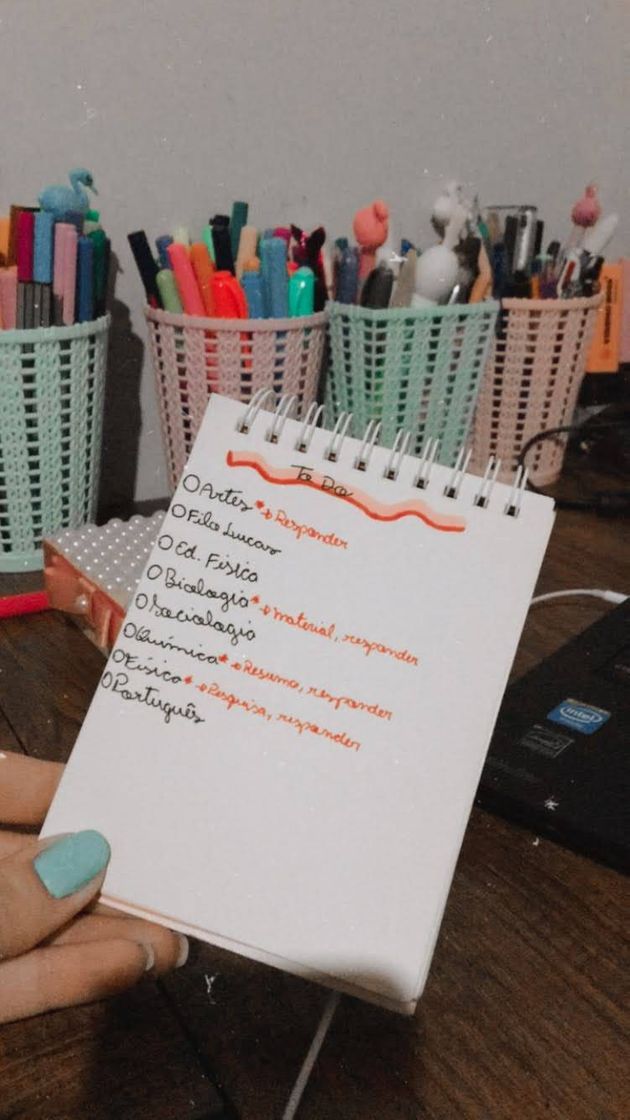 To Do
Artes *→ Responder
Filo Lucas
Ed. Física
Biologia *→ material, responder
Sociologia
Química *→ Resumo, responder
Física *→ Pesquisa, responder
Português
intel